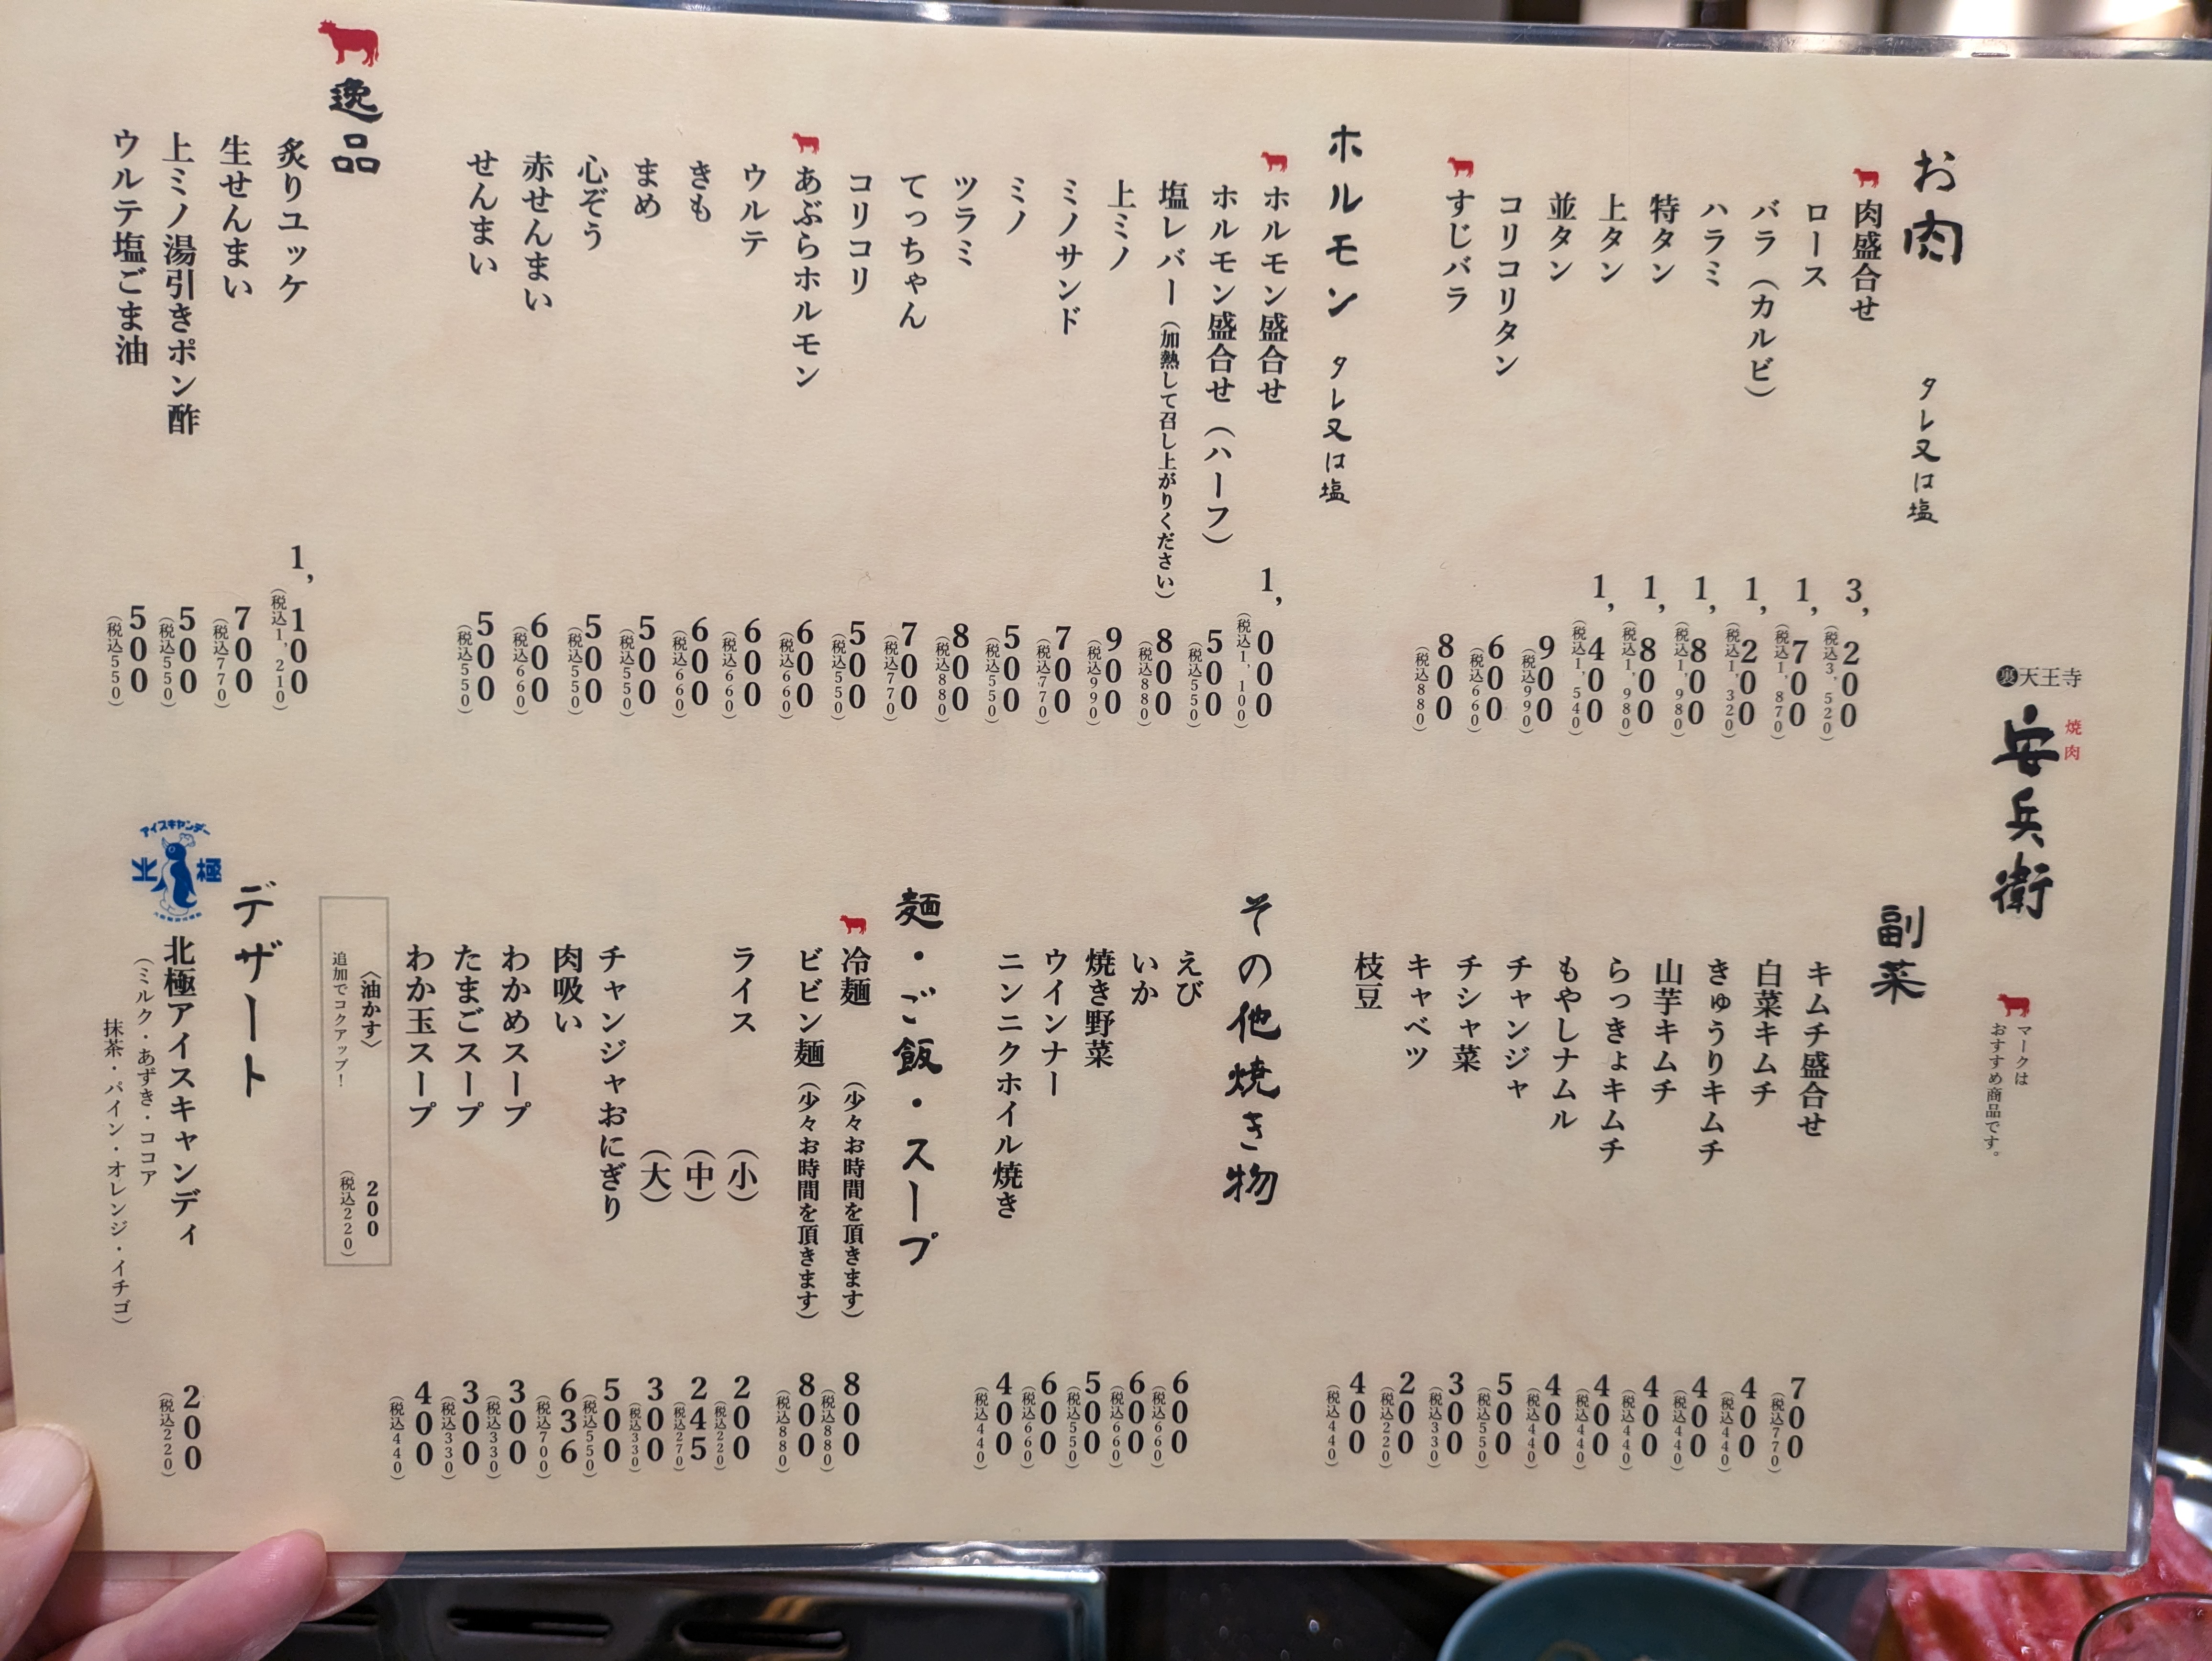 裏天王寺
焼肉
安兵衛
マークは
おすすめ商品です。
お肉 タレ又は塩
肉盛合せ 3,200 (税込3,520)
ロース 1,700 (税込1,870)
バラ(カルビ) 1,200 (税込1,320)
ハラミ 1,800 (税込1,980)
特タン 1,800 (税込1,980)
上タン 1,400 (税込1,540)
並タン 900 (税込990)
コリコリタン 600 (税込660)
すじバラ 800 (税込880)
ホルモン タレ又は塩
ホルモン盛合せ 1,000 (税込1,100)
ホルモン盛合せ(ハーフ) 500 (税込550)
塩レバー(加熱して召し上がりください) 800 (税込880)
上ミノ 900 (税込990)
ミノサンド 700 (税込770)
ミノ 500 (税込550)
ツラミ 800 (税込880)
てっちゃん 700 (税込770)
コリコリ 500 (税込550)
あぶらホルモン 600 (税込660)
ウルテ 600 (税込660)
きも 600 (税込660)
まめ 500 (税込550)
心ぞう 500 (税込550)
赤せんまい 600 (税込660)
せんまい 500 (税込550)
逸品
炙りユッケ 1,100 (税込1,210)
生せんまい 700 (税込770)
上ミノ湯引きポン酢 500 (税込550)
ウルテ塩ごま油 500 (税込550)
副菜
キムチ盛合せ 700 (税込770)
白菜キムチ 400 (税込440)
きゅうりキムチ 400 (税込440)
山芋キムチ 400 (税込440)
らっきょキムチ 400 (税込440)
もやしナムル 400 (税込440)
チャンジャ 500 (税込550)
チシャ菜 300 (税込330)
キャベツ 200 (税込220)
枝豆 400 (税込440)
その他焼き物
えび 600 (税込660)
いか 600 (税込660)
焼き野菜 500 (税込550)
ウインナー 600 (税込660)
ニンニクホイル焼き 400 (税込440)
麺・ご飯・スープ
冷麺(少々お時間を頂きます) 800 (税込880)
ビビン麺(少々お時間を頂きます) 800 (税込880)
ライス (小) 200 (税込220)
(中) 245 (税込270)
(大) 300 (税込330)
チャンジャおにぎり 500 (税込550)
肉吸い 636 (税込700)
わかめスープ 300 (税込330)
たまごスープ 300 (税込330)
わか玉スープ 400 (税込440)
〈油かす〉 200 (税込220)
追加でコクアップ!
デザート
アイスキャンデー
北極
北極アイスキャンディ 200 (税込220)
(ミルク・あずき・ココア
抹茶・パイン・オレンジ・イチゴ)